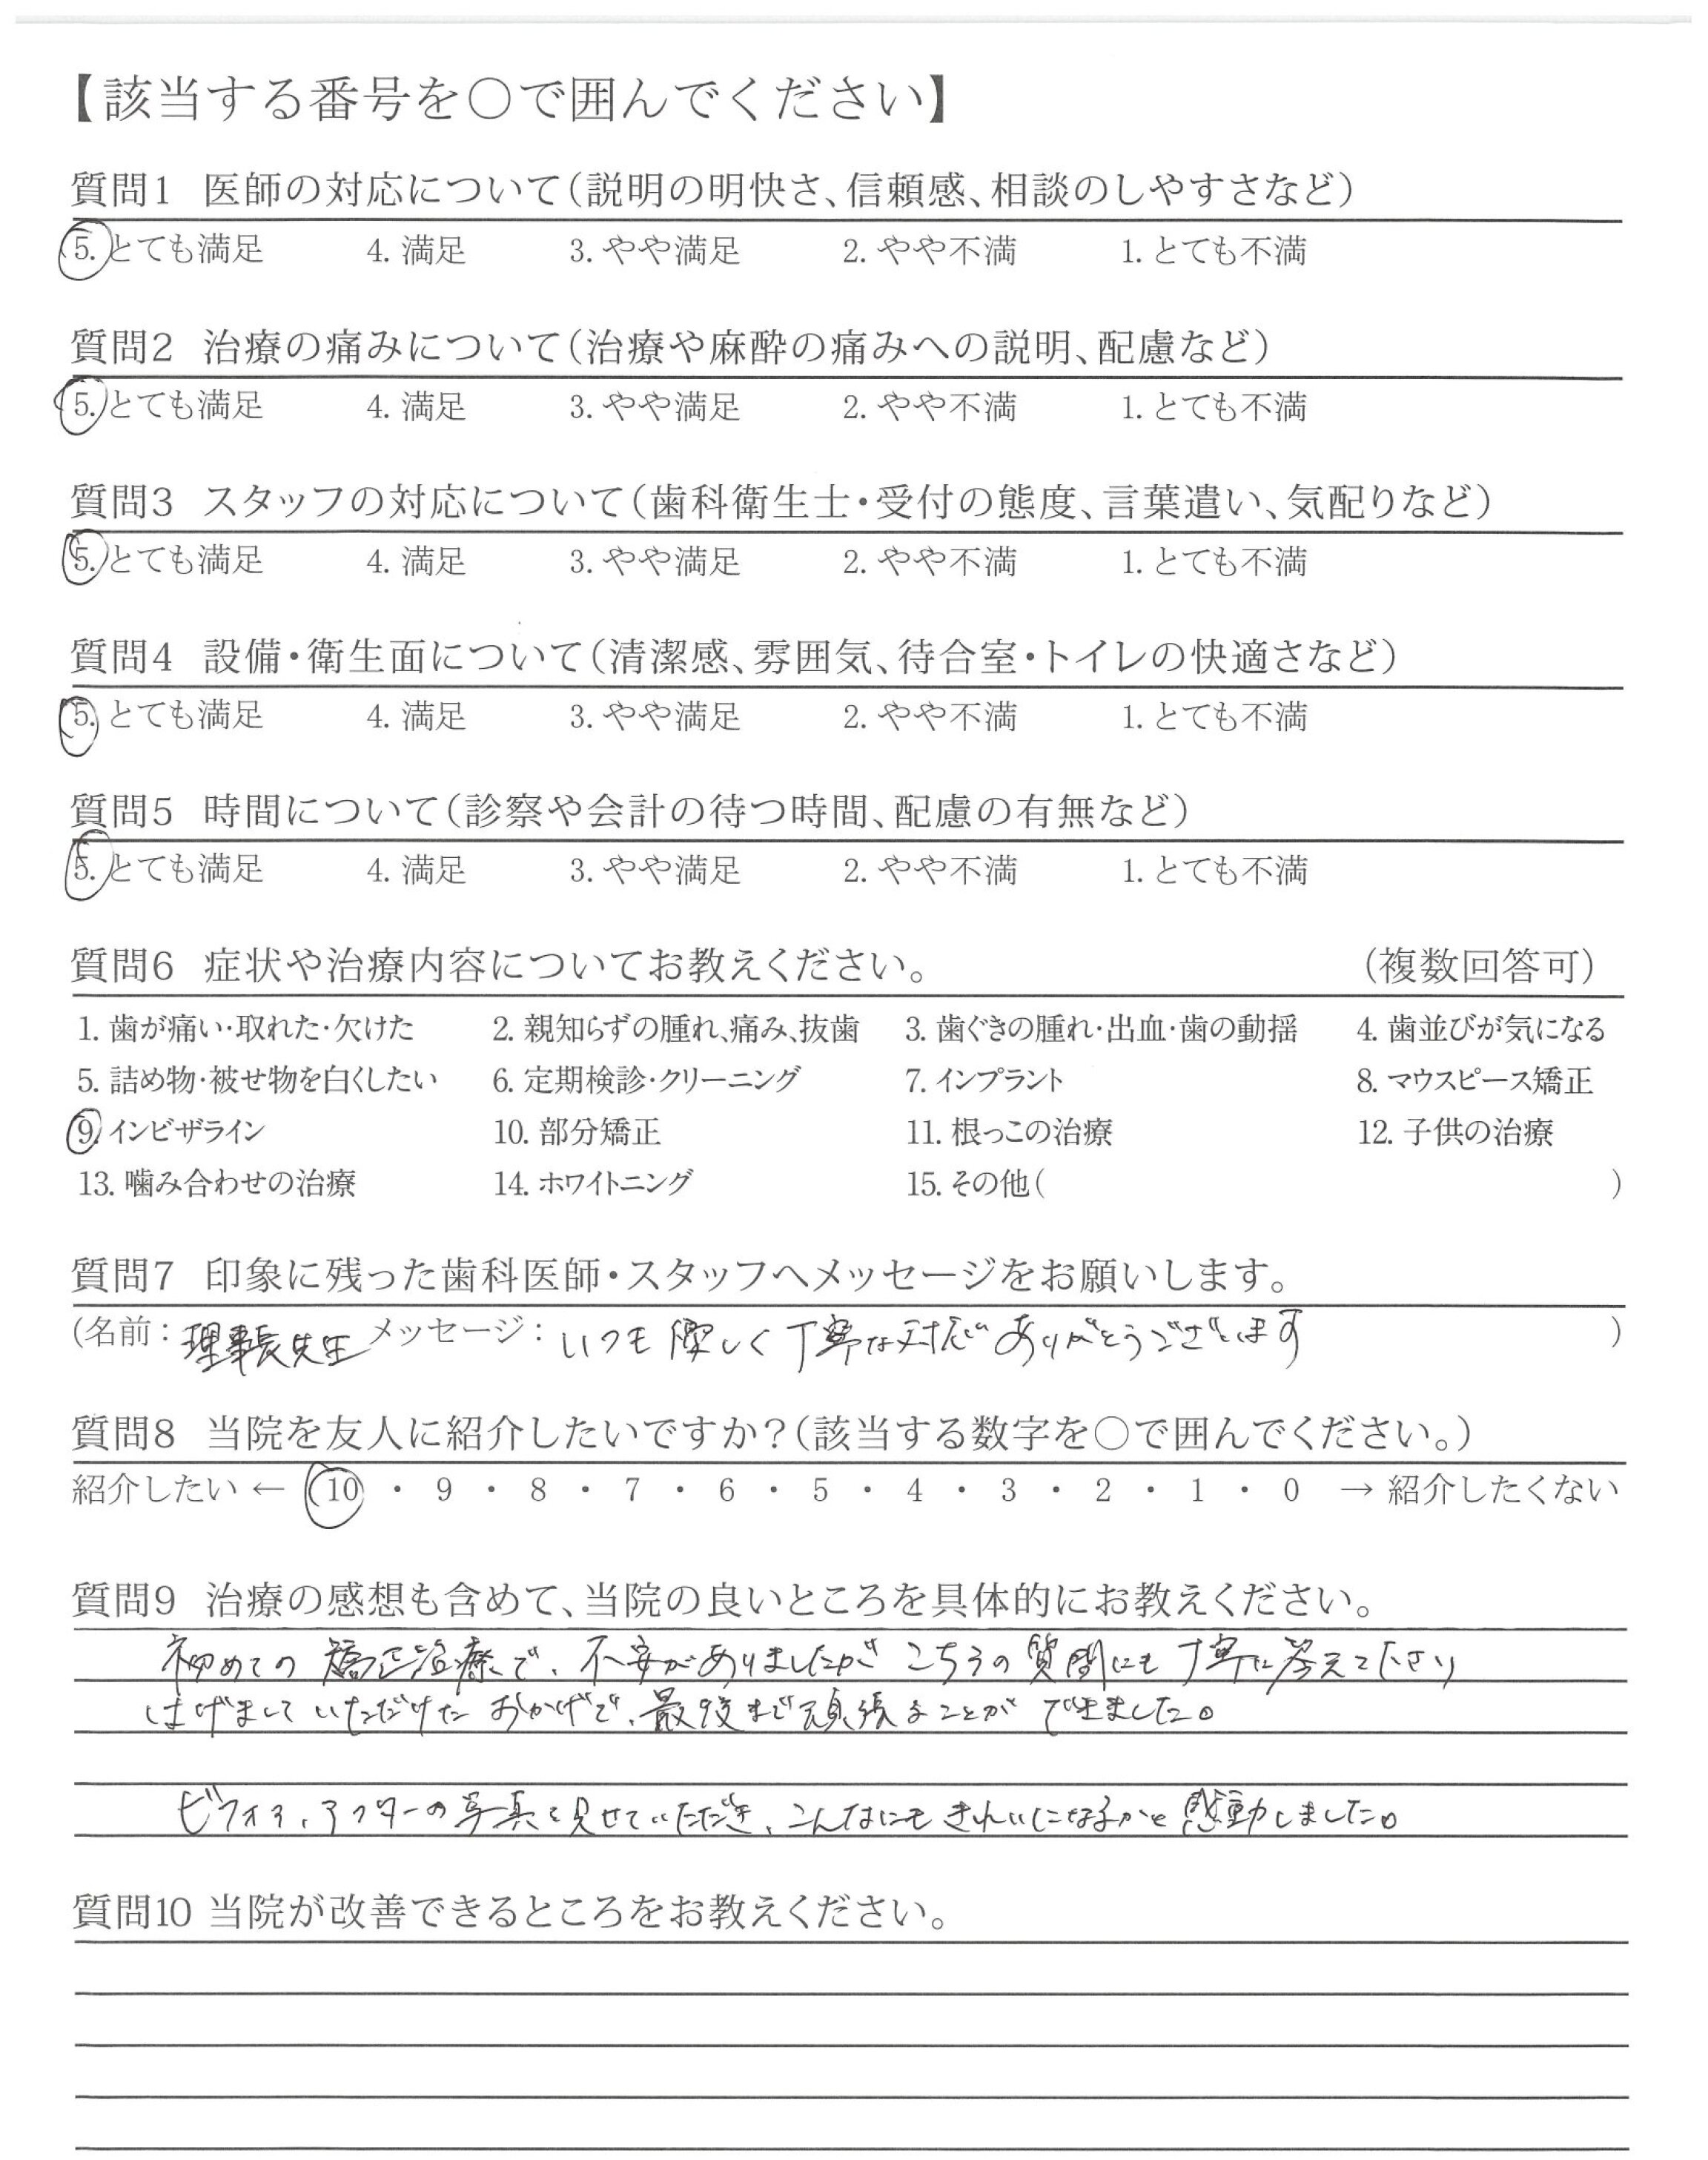 【該当する番号を〇で囲んでください】
質問1 医師の対応について(説明の明快さ、信頼感、相談のしやすさなど)
5. とても満足 4. 満足 3. やや満足 2. やや不満 1. とても不満
質問2 治療の痛みについて(治療や麻酔の痛みへの説明、配慮など)
5. とても満足 4. 満足 3. やや満足 2. やや不満 1. とても不満
質問3 スタッフの対応について(歯科衛生士・受付の態度、言葉遣い、気配りなど)
5. とても満足 4. 満足 3. やや満足 2. やや不満 1. とても不満
質問4 設備・衛生面について(清潔感、雰囲気、待合室・トイレの快適さなど)
5. とても満足 4. 満足 3. やや満足 2. やや不満 1. とても不満
質問5 時間について(診察や会計の待つ時間、配慮の有無など)
5. とても満足 4. 満足 3. やや満足 2. やや不満 1. とても不満
質問6 症状や治療内容についてお教えください。 (複数回答可)
1. 歯が痛い・取れた・欠けた 2. 親知らずの腫れ、痛み、抜歯 3. 歯ぐきの腫れ・出血・歯の動揺 4. 歯並びが気になる
5. 詰め物・被せ物を白くしたい 6. 定期検診・クリーニング 7. インプラント 8. マウスピース矯正
9. インビザライン 10. 部分矯正 11. 根っこの治療 12. 子供の治療
13. 噛み合わせの治療 14. ホワイトニング 15. その他( )
質問7 印象に残った歯科医師・スタッフへメッセージをお願いします。
(名前: 理事長先生 メッセージ: いつも優しく丁寧な対応ありがとうございます )
質問8 当院を友人に紹介したいですか?(該当する数字を〇で囲んでください。)
紹介したい ← 10 ・ 9 ・ 8 ・ 7 ・ 6 ・ 5 ・ 4 ・ 3 ・ 2 ・ 1 ・ 0 → 紹介したくない
質問9 治療の感想も含めて、当院の良いところを具体的にお教えください。
初めての矯正治療で、不安がありましたが こちらの質問にも丁寧に答えて下さり
はげましていただけた おかげで、最後まで頑張ることが できました。
ビフォア、アフターの写真を見せていただき、こんなにも きれいになるかと感動しました。
質問10 当院が改善できるところをお教えください。